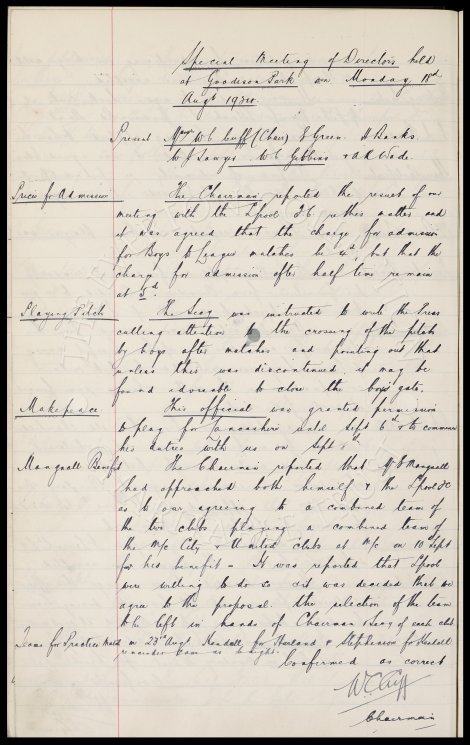 Special Meeting of Directors held
at Goodison Park on Monday 18th
Augt 1924.
Present Messrs W C Cuff (Chair) E Green A Banks
W J Sawyer W C Gibbins & A R Wade.
Prices for Admission The Chairman reported the result of our
meeting with the Lpool F C re this matter and
it was agreed that the charge for admission
for Boys to League matches be 4d, but that the
charge for admission after half time remain
at
Playing Pitch The Secy was instructed to write the Press
calling attention to the crossing of the pitch
by boys after matches and pointing out that
unless this was discontinued it may be
found advisable to close the boys' gate.
Makepeace This official was granted permission
to play for Lancashire until Sept 6th & to commence
his duties with us on Sept
Mangnall Benefit The Chairman reported that Mr E Mangnall
had approached both himself & the Lpool F C
as to our agreeing to a combined team of
the two clubs playing a combined team of
the M/c City & United clubs at M/c on 10 Sept
for his benefit - It was reported that Lpool
were willing to do so & it was decided that we
agree to the proposal the selection of the team
to be left in hands of Chairman & Secy of each club
Teams for Practice Match on 23rd Augt Kendall for & Stephenson for Kendall
remainder team as
Confirmed as correct
W C Cuff
Chairman